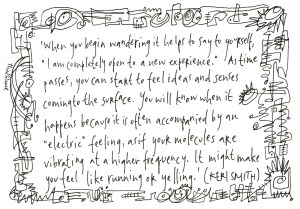 'When you begin wandering it helps to say to yourself,
"I am completely open to a new experience." As time
passes, you can start to feel ideas and senses
coming to the surface. You will know when it
happens because it is often accompanied by an
"electric" feeling, as if your molecules are
vibrating at a higher frequency. It might make
you feel like running or yelling.' (KERI SMITH)